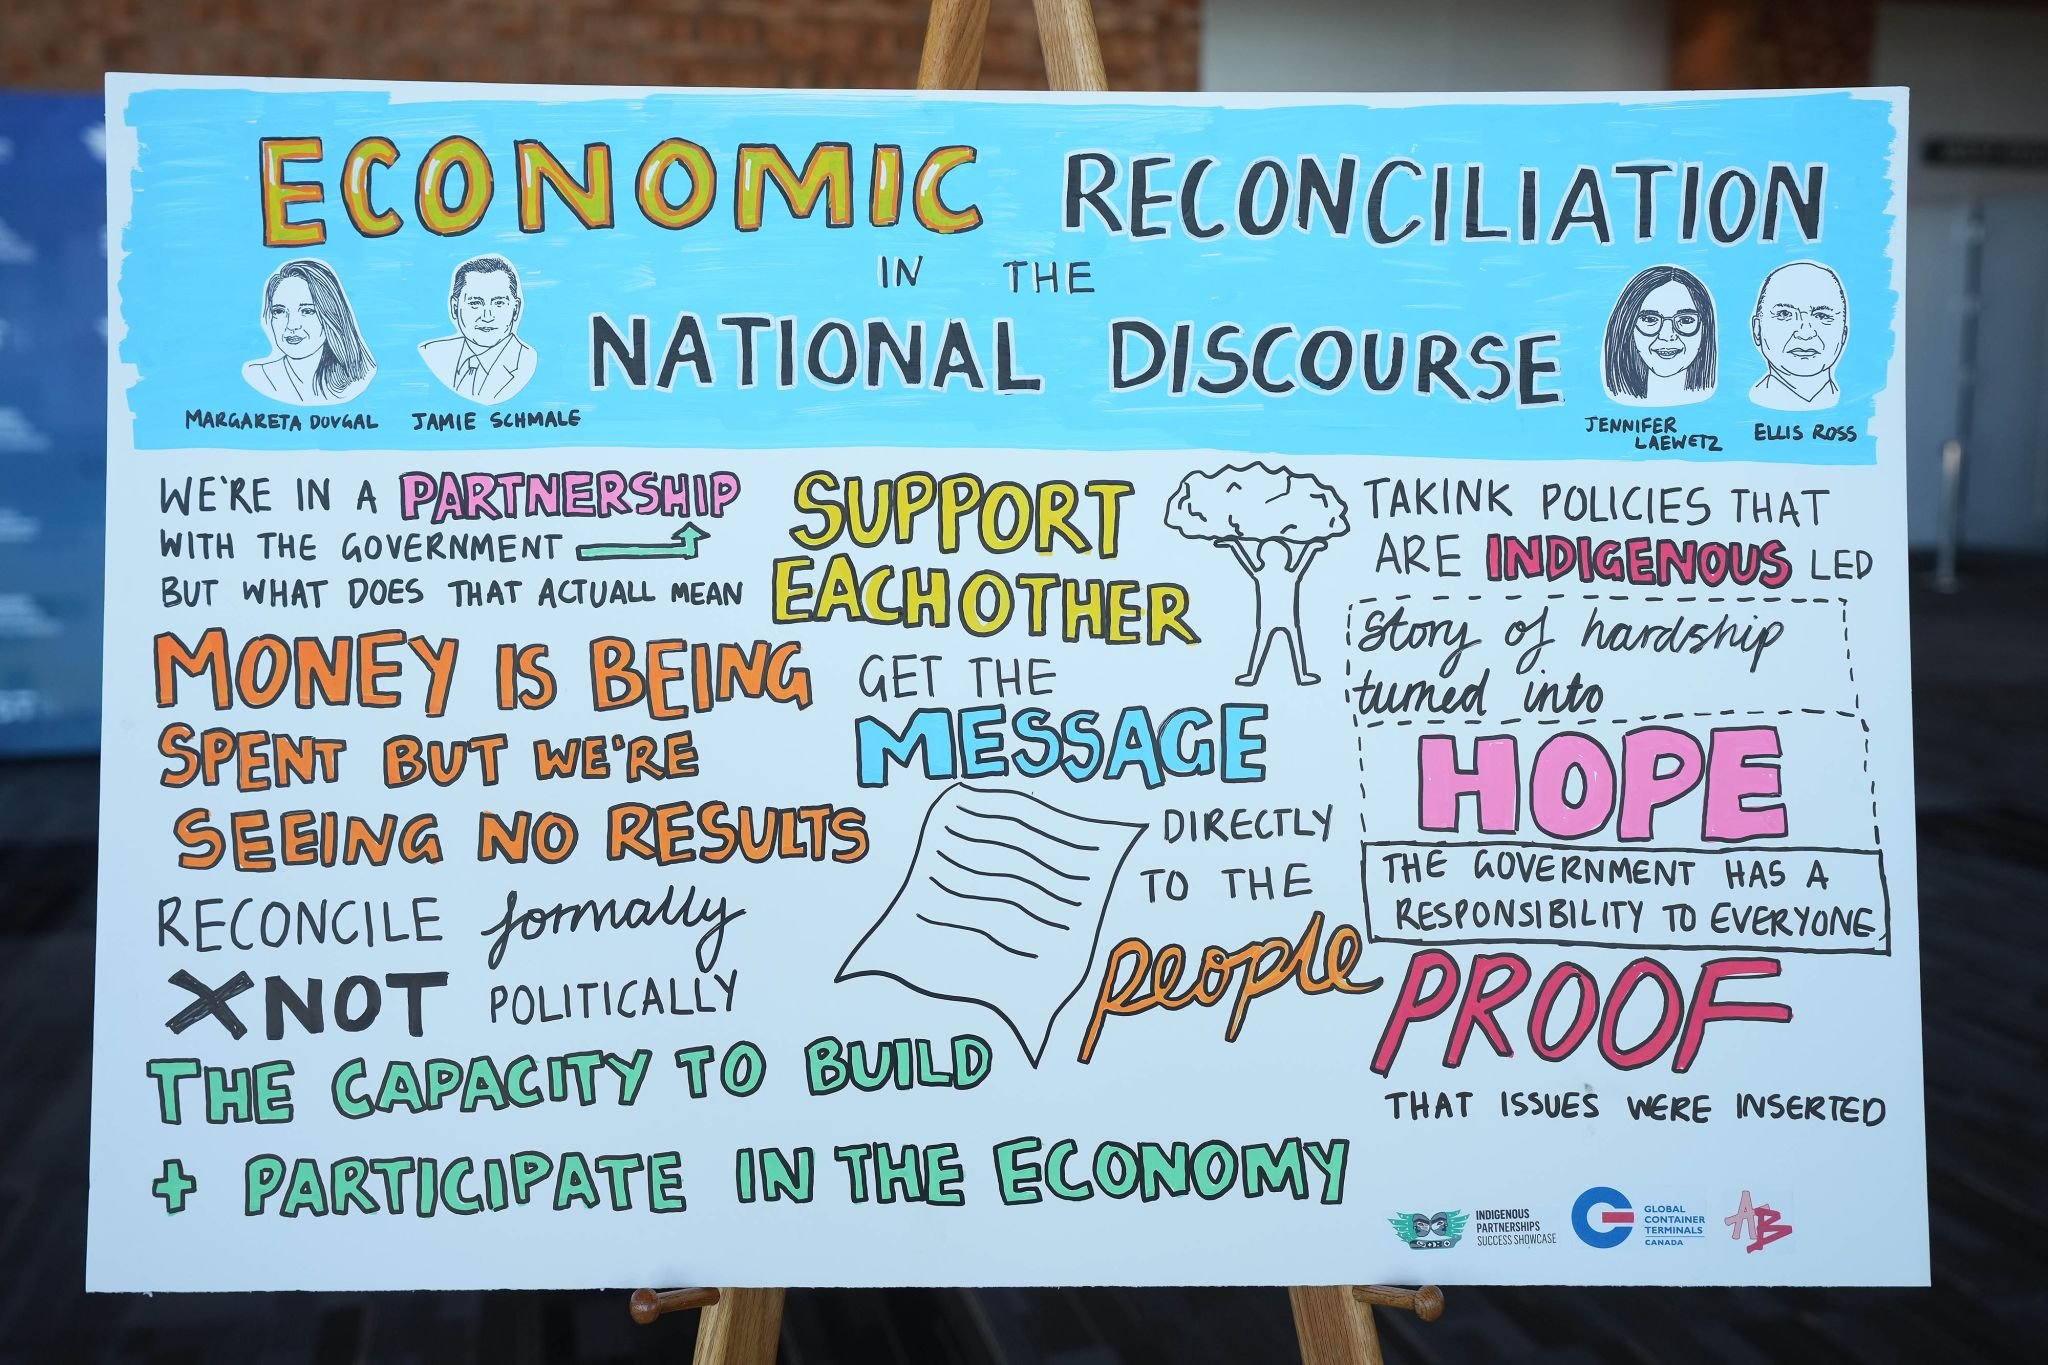 ECONOMIC RECONCILIATION
IN THE
NATIONAL DISCOURSE
MARGARETA DOVGAL
JAMIE SCHMALE
JENNIFER
LAEWETZ
ELLIS ROSS
WE'RE IN A PARTNERSHIP
WITH THE GOVERNMENT
BUT WHAT DOES THAT ACTUALL MEAN
MONEY IS BEING
SPENT BUT WE'RE
SEEING NO RESULTS
RECONCILE formally
NOT POLITICALLY
THE CAPACITY TO BUILD
+ PARTICIPATE IN THE ECONOMY
SUPPORT
EACH OTHER
GET THE
MESSAGE
DIRECTLY
TO THE
people
TAKINK POLICIES THAT
ARE INDIGENOUS LED
story of hardship
turned into
HOPE
THE GOVERNMENT HAS A
RESPONSIBILITY TO EVERYONE,
PROOF
THAT ISSUES WERE INSERTED
INDIGENOUS
PARTNERSHIPS
SUCCESS SHOWCASE
GLOBAL
CONTAINER
TERMINALS
CANADA
AB